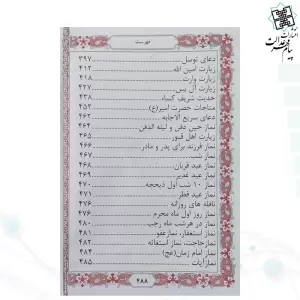 انتشارات
پیام عدالت
فهرست
دعای توسل ۳۹۷
زیارت امین الله ۴۱۲
زیارت وارث ۴۱۸
زیارت آل یس ۴۲۷
حدیث شریف کساء ۴۳۸
مناجات حضرت امیر(ع) ۴۵۲
دعای سریع الاجابه ۴۶۲
نماز حین دفن و لیله الدفن ۴۶۴
زیارت اهل قبور ۴۶۵
نماز فرزند برای پدر و مادر ۴۶۶
نماز شب ۴۶۷
نماز عید قربان ۴۶۸
نماز عید غدیر ۴۶۹
نماز ۱۰ شب اول ذیحجه ۴۷۰
نماز عید فطر ۴۷۱
نافله های روزانه ۴۷۶
نماز روز اول ماه محرم ۴۷۶
نماز در هرشب ماه رجب ۴۸۰
نماز استغفار، نماز عفو ۴۸۱
نماز حاجت، نماز استغاثه ۴۸۲
نماز امام زمان(عج) ۴۸۴
نماز آیات ۴۸۵
۴۸۸